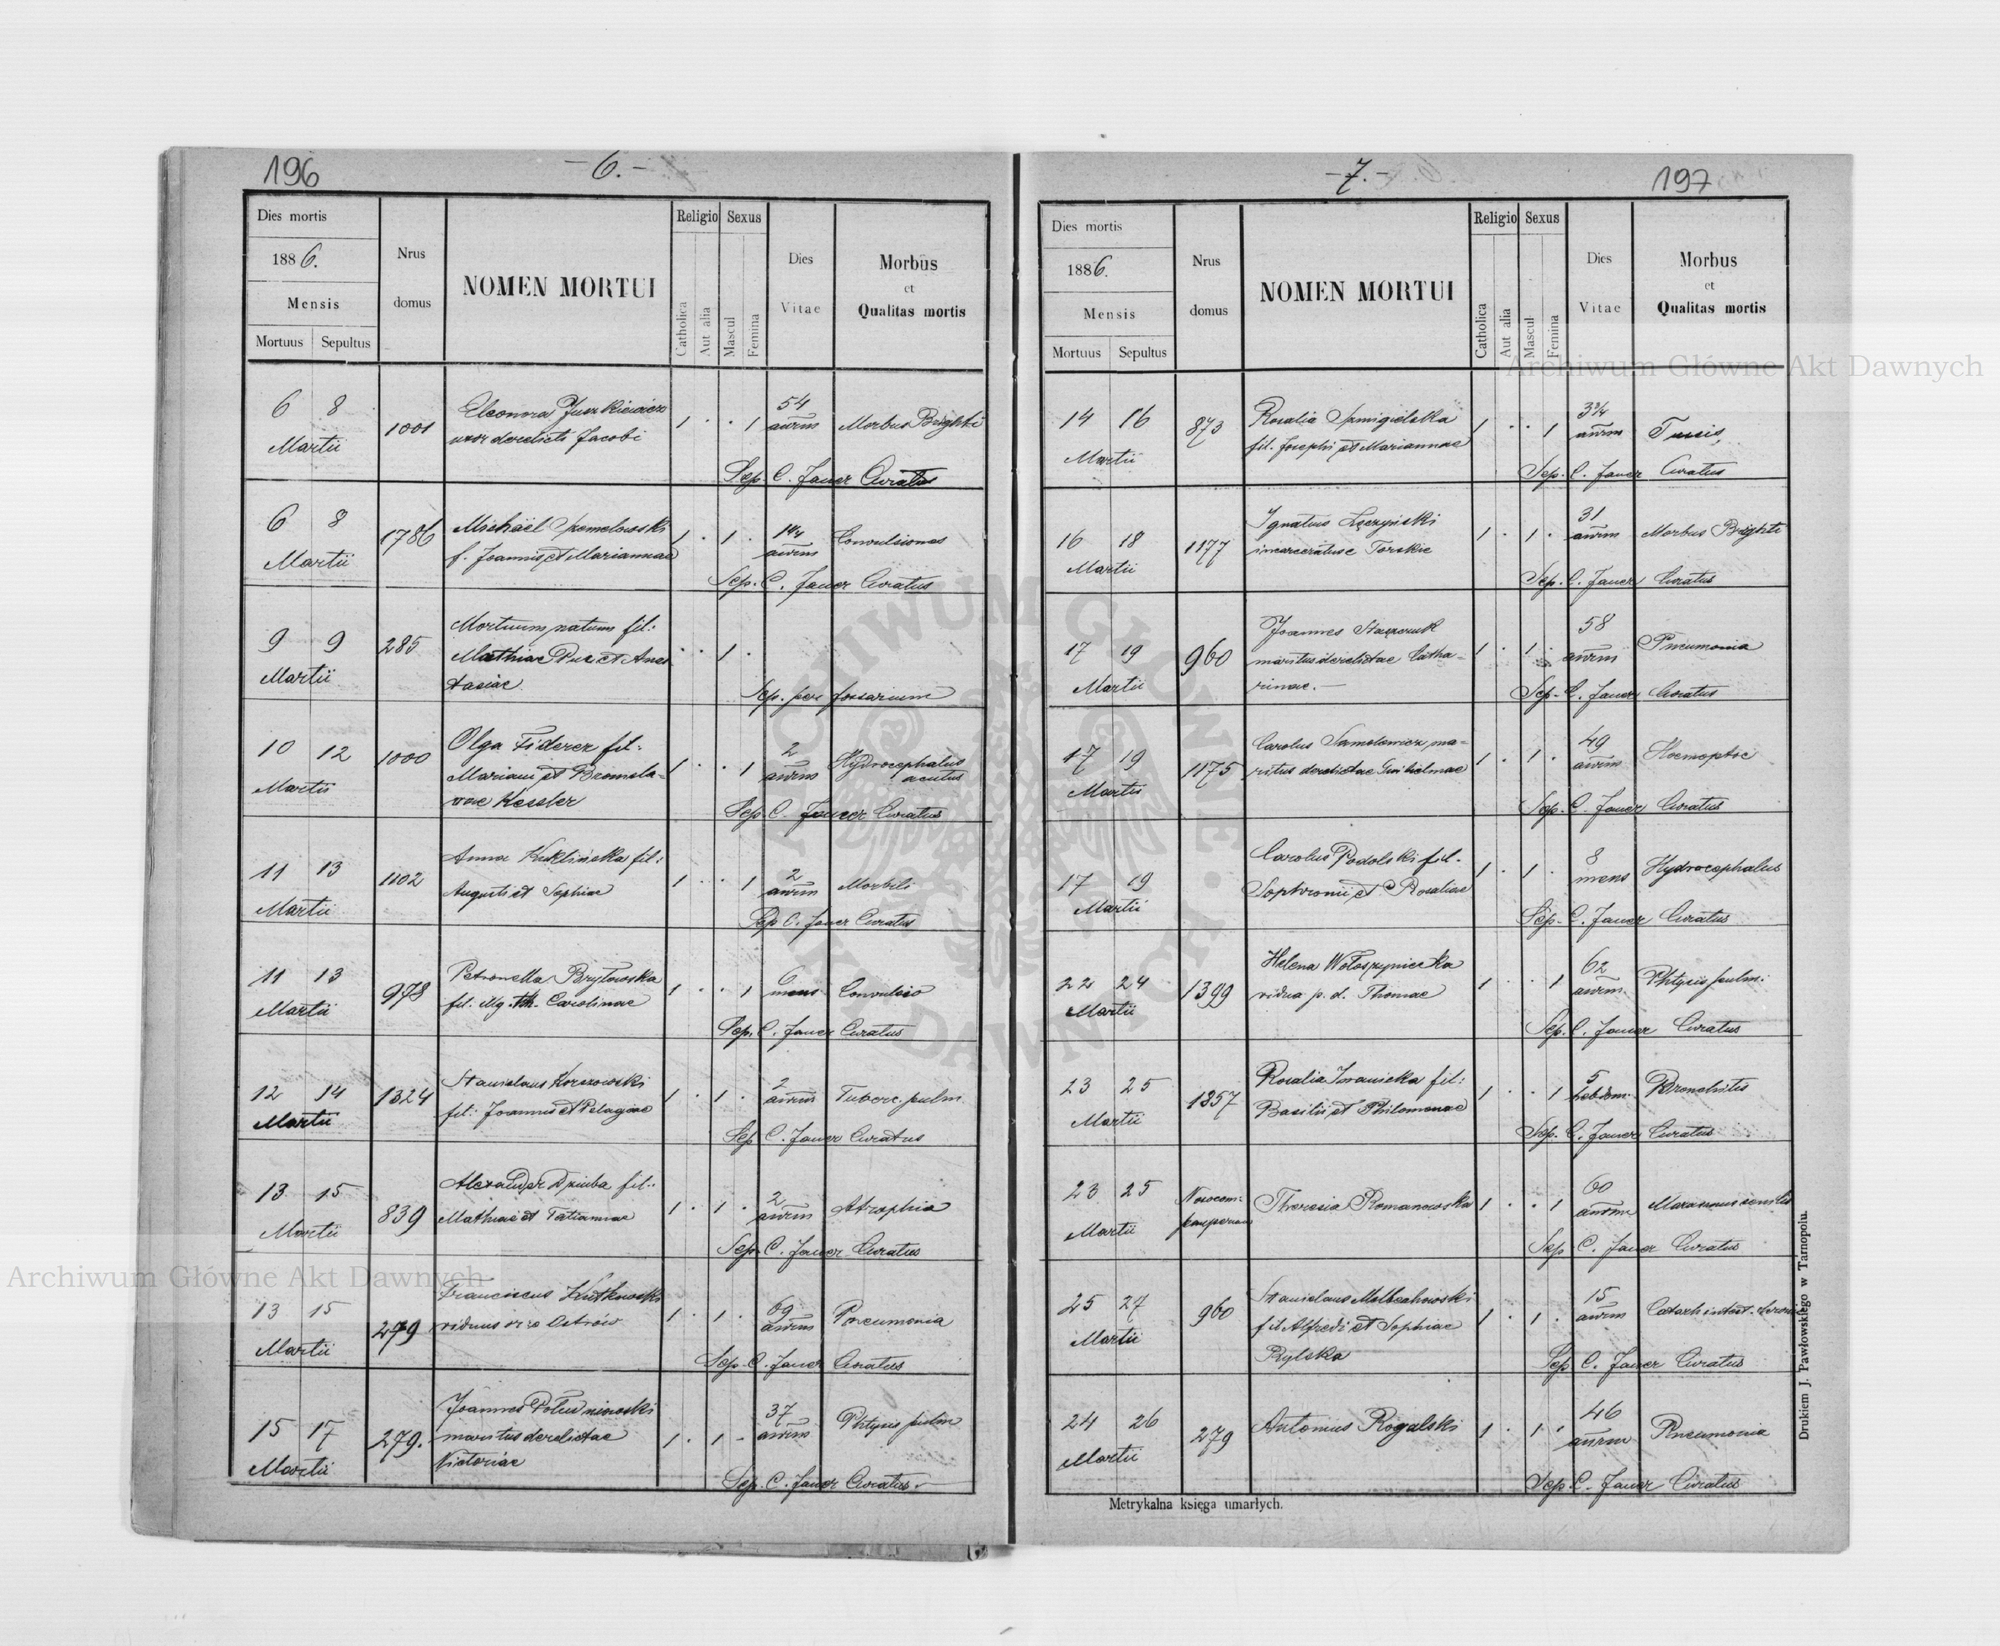 196
- 6. -
Dies mortis
1886.
Mensis
Mortuus Sepultus
Nrus
domus
NOMEN MORTUI
Religio Sexus
Catholica
Aut alia
Mascul
Femina
Dies
Vitae
Morbus
et
Qualitas mortis
6 8
Martii
1001
Eleonora Juszkiewicz
uxor derelicti Jacobi
1 . . 1
54
annrm
Morbus Brighti
Sep. C. Jauer Curatus
6 8
Martii
1786
Michaël
f. Joannis et Mariannae
1 . 1 .
annrm
Convulsiones
Sep. C. Jauer Curatus
9 9
Martii
285
Mortuum natum fil:
Mathiae Puc et Anas
tasiae
. . 1 .
Sep. per fossarium
10 12
Martii
1000
Olga Fiderer fil.
Mariani et Bronisla-
vae Kessler
1 . . 1
2
annrm
Hydrocephalus
acutus
Sep. C. Jauer Curatus
11 13
Martii
1102
Anna Kuklińska fil:
Augusti et Sophiae
1 . . 1
2
annrm
Morbili
Sep C. Jauer Curatus
11 13
Martii
978
Petronella Bryłowska
fil. Mg. Th. Carolinae
1 . . 1
6
mens.
Convulsio
Sep. C. Jauer Curatus
12 14
Martii
1324
Stanislaus
fil: Joannis et Pelagiae
1 . 1 .
2
annrm
Tuberc. pulm.
Sep C. Jauer Curatus
13 15
Martii
839
Alexander Dziuba fil:
Mathiae et Tatiannae
1 . 1 .
2
annrm
Atrophia
Sep. C. Jauer Curatus
13 15
Martii
279
Franciscus Kutkowski
viduus Ostrów
1 . 1 .
69
annrm
Pneumonia
Sep. C. Jauer Curatus
15 17
Martii
279.
Joannes
maritus derelictae
Victoriae
1 . 1 .
37
annrm
Phtysis pulm
Sep. C. Jauer Curatus.
- 7. -
197
Dies mortis
1886.
Mensis
Mortuus Sepultus
Nrus
domus
NOMEN MORTUI
Religio Sexus
Catholica
Aut alia
Mascul
Femina
Dies
Vitae
Morbus
et
Qualitas mortis
14 16
Martii
873
Rosalia Śmigielska
fil. Josephi et Mariannae
1 . . 1
3 3/4
annrm
Tussis,
Sep. C. Jauer Curatus
16 18
Martii
1177
Ignatius Łęczyński
incarceratus e Torskie
1 . 1 .
31
annrm
Morbus Brighti
Sep. C. Jauer Curatus
17 19
Martii
960
Joannes
maritus derelictae Catha-
rinae. -
1 . 1 .
58
annrm
Pneumonia
Sep. C. Jauer Curatus
17 19
Martii
1175
Carolus Samolewicz ma-
ritus derelictae Guilielmae
1 . 1 .
49
annrm
Haemoptoe
Sep. C. Jauer Curatus
17 19
Martii
Carolus Podolski fil.
Sophronii et Rosaliae
1 . 1 .
8
mens
Hydrocephalus
Sep. C. Jauer Curatus
22 24
Martii
1399
Helena Wołoszyniecka
vidua p. d. Thomae
1 . . 1
62
annrm.
Phtysis pulm:
Sep. C. Jauer Curatus
23 25
Martii
1357
Rosalia Iwanicka fil:
Basilii et Philomenae
1 . . 1
5
hebdom.
Bronchitis
Sep. C. Jauer Curatus
23 25
Martii
Nosocom:
pauperum
Theresia Romanowska
1 . . 1
60
annrm
Marasmus senilis
Sep C. Jauer Curatus
25 27
Martii
960
Stanislaus
fil Alfredi et Sophiae
Rylska
1 . 1 .
15
annrm
Catarh intest. chronic
Sep C. Jauer Curatus
24 26
Martii
279
Antonius Rogalski
1 . 1 .
46
annrm
Pneumonia
Sep. C. Jauer Curatus
Metrykalna księga umarłych.
Drukiem J. Pawłowskiego w Tarnopolu.
Archiwum Główne Akt Dawnych
Archiwum Główne Akt Dawnych
ARCHIWUM GŁÓWNE AKT DAWNYCH